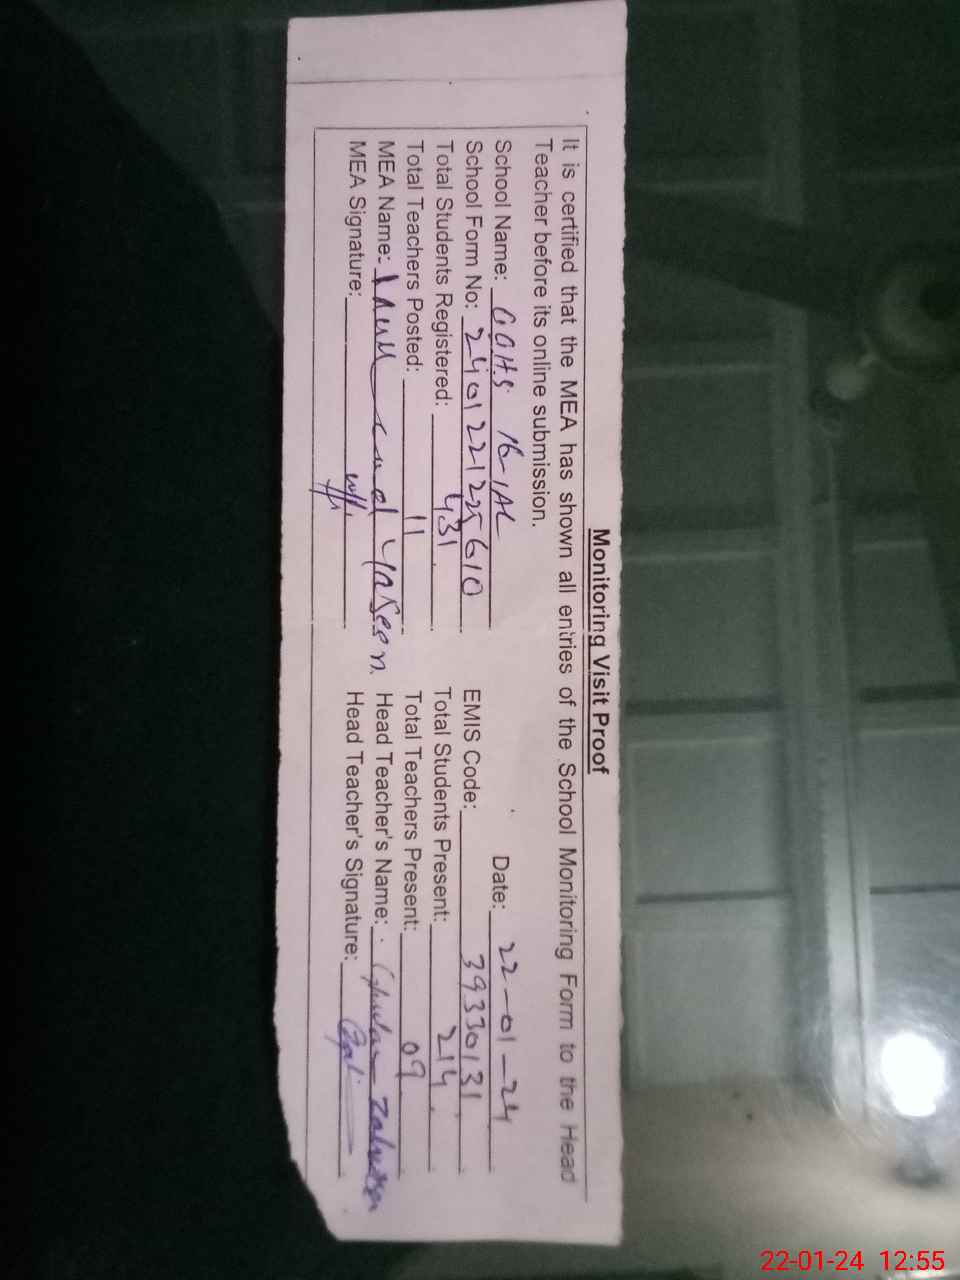 Monitoring Visit Proof
It is certified that the MEA has shown all entries of the School Monitoring Form to the Head
Teacher before its online submission.
School Name: GGHS 16-1AL Date: 22-01-24
School Form No: 2401221225610 EMIS Code: 39330131
Total Students Registered: 431 Total Students Present: 214
Total Teachers Posted: 11 Total Teachers Present: 09
MEA Name: Yaseen Head Teacher's Name: Ghulam
MEA Signature: Head Teacher's Signature:
22-01-24 12:55